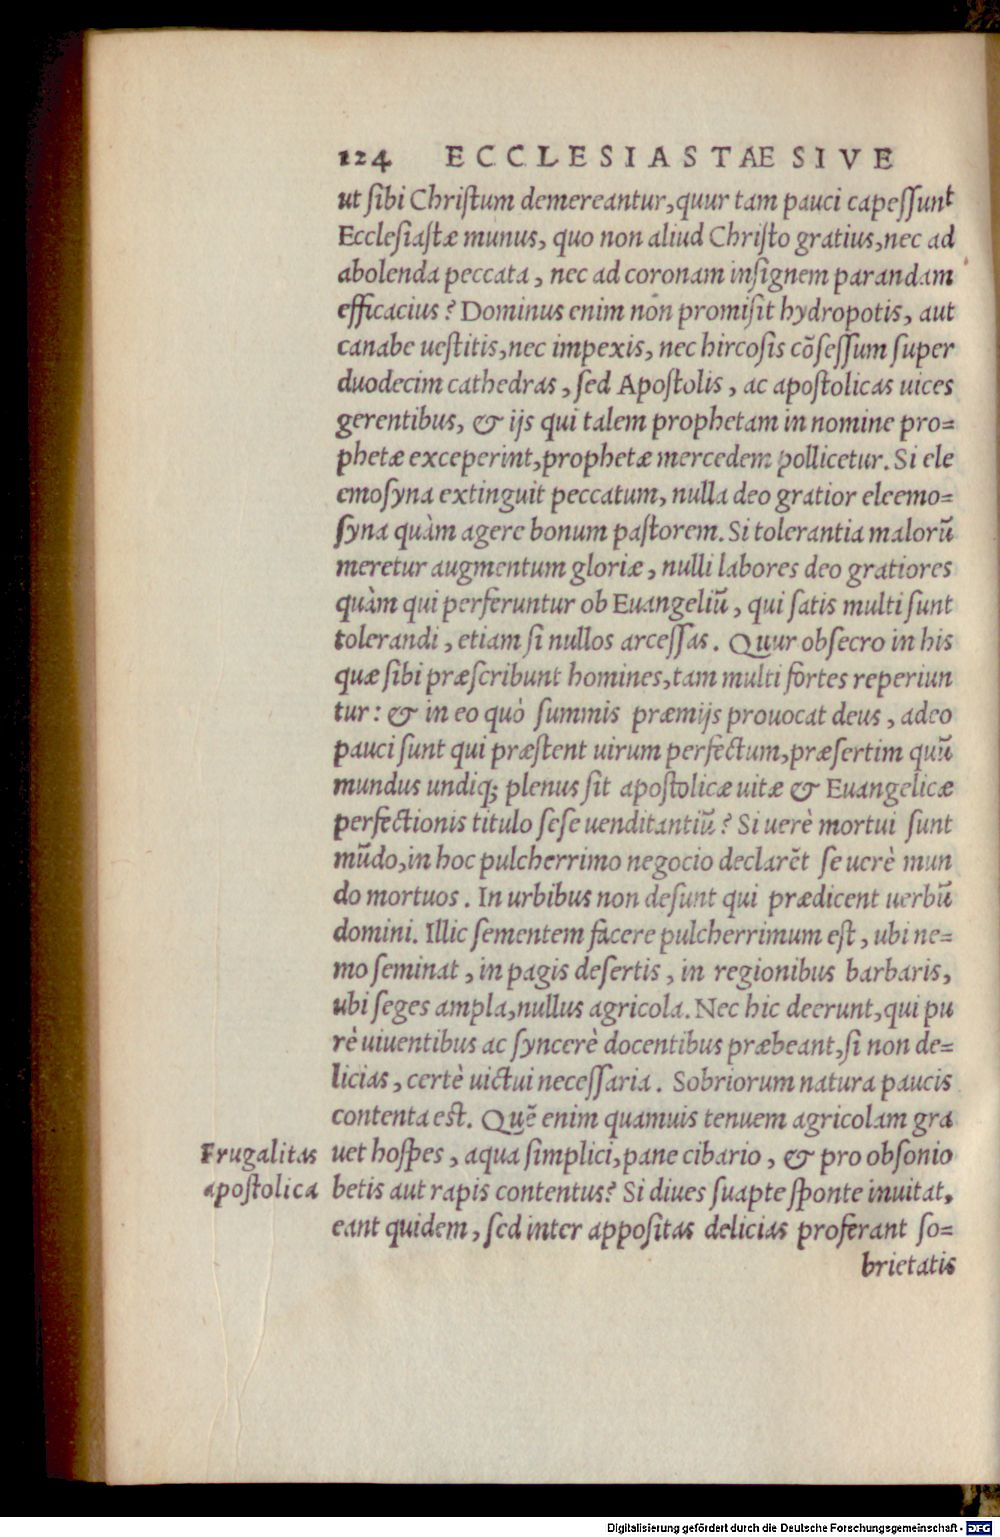 124 ECCLESIASTAE SIVE
ut ſibi Chriſtum demereantur, quur tam pauci capeſſunt
Eccleſiaſtæ munus, quo non aliud Chriſto gratius, nec ad
abolenda peccata, nec ad coronam inſignem parandam
efficacius? Dominus enim non promiſit hydropotis, aut
canabe ueſtitis, nec impexis, nec hircoſis cõſeſſum ſuper
duodecim cathedras, ſed Apoſtolis, ac apoſtolicas uices
gerentibus, & ijs qui talem prophetam in nomine pro=
phetæ exceperint, prophetæ mercedem pollicetur. Si ele
emoſyna extinguit peccatum, nulla deo gratior eleemo=
ſyna quàm agere bonum paſtorem. Si tolerantia malorũ
meretur augmentum gloriæ, nulli labores deo gratiores
quàm qui perferuntur ob Euangeliũ, qui ſatis multi ſunt
tolerandi, etiam ſi nullos arceſſas. Quur obſecro in his
quæ ſibi præſcribunt homines, tam multi fortes reperiun
tur: & in eo quò ſummis præmijs prouocat deus, adeo
pauci ſunt qui præſtent uirum perfectum, præſertim quũ
mundus undiq; plenus ſit apoſtolicæ uitæ & Euangelicæ
perfectionis titulo ſeſe uenditantiũ? Si uerè mortui ſunt
mũdo, in hoc pulcherrimo negocio declarẽt ſe uerè mun
do mortuos. In urbibus non deſunt qui prædicent uerbũ
domini. Illic ſementem facere pulcherrimum eſt, ubi ne=
mo ſeminat, in pagis deſertis, in regionibus barbaris,
ubi ſeges ampla, nullus agricola. Nec hic deerunt, qui pu
rè uiuentibus ac ſyncerè docentibus præbeant, ſi non de=
licias, certè uictui neceſſaria. Sobriorum natura paucis
contenta eſt. Quẽ enim quamuis tenuem agricolam gra
Frugalitas uet hoſpes, aqua ſimplici, pane cibario, & pro obſonio
apoſtolica betis aut rapis contentus? Si diues ſuapte ſponte inuitat,
eant quidem, ſed inter appoſitas delicias proferant ſo=
brietatis
Digitalisierung gefördert durch die Deutsche Forschungsgemeinschaft - DFG